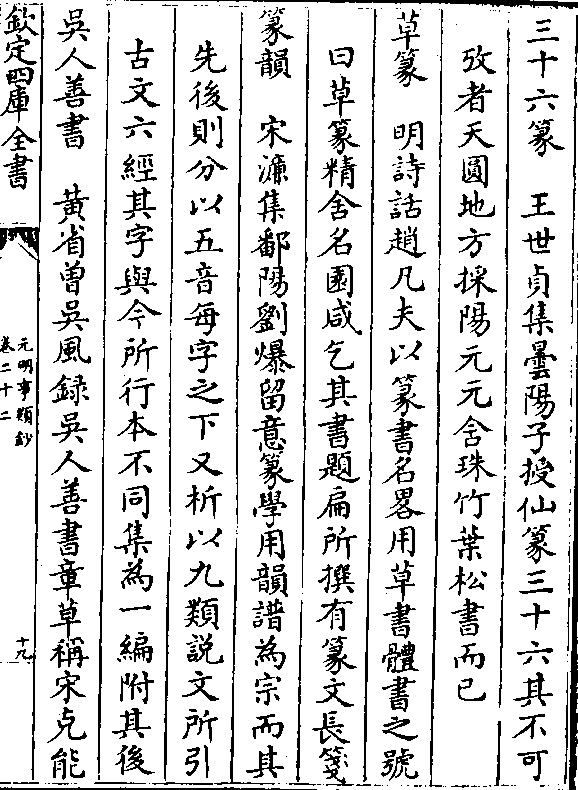 三十六篆　王世貞集曇陽子授仙篆三十六其不可
攷者天圓地方採陽元元含珠竹葉松書而已
草篆　明詩話趙凡夫以篆書名畧用草書體書之號
曰草篆精舍名園咸乞其書題扁所撰有篆文長箋
篆韻　宋濂集鄱陽劉爆留意篆學用韻譜為宗而其
先後則分以五音每字之下又析以九類説文所引
古文六經其字與今所行本不同集為一編附其後
吳人善書　黄省曾吳風録吳人善書章草稱宋克能
欽定四庫全書
元明事類鈔
卷二十二
十九